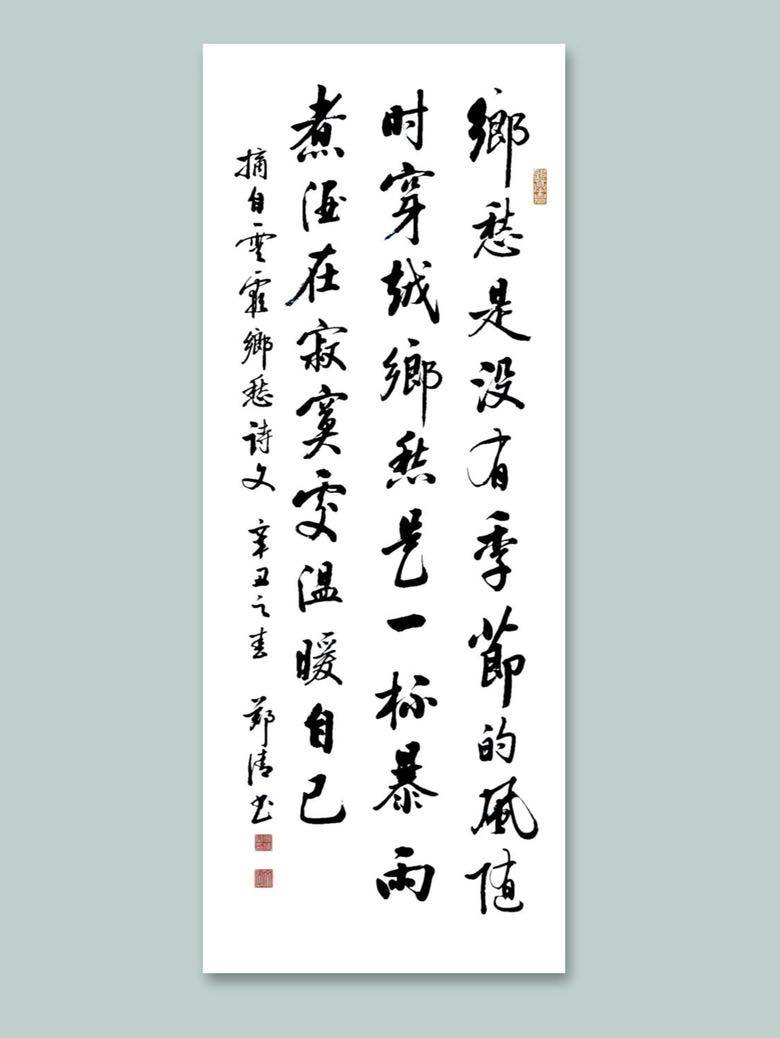 鄉愁是没有季節的風随
时穿越鄉愁是一杯暴雨
煮酒在寂寞處温暖自己
摘自雲鄉愁诗文 辛丑之春 鄭清书